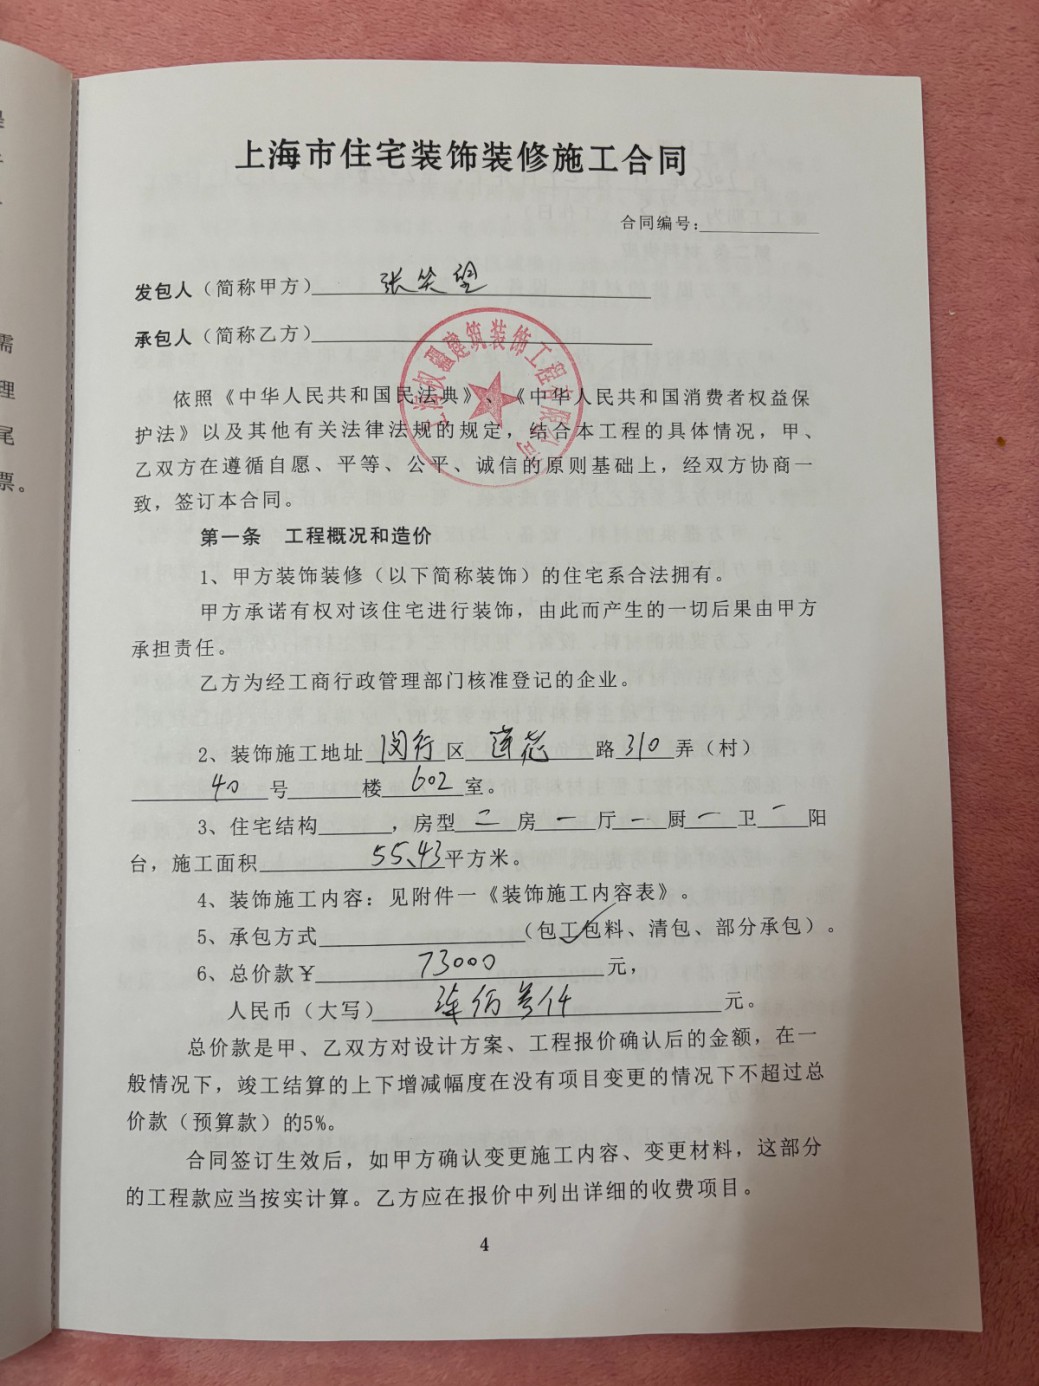 是
需
理
尾
票。
上海市住宅装饰装修施工合同
合同编号：
发包人（简称甲方）张笑望
承包人（简称乙方）
上海权疆建筑装饰工程有限公司
依照《中华人民共和国民法典》、《中华人民共和国消费者权益保
护法》以及其他有关法律法规的规定，结合本工程的具体情况，甲、
乙双方在遵循自愿、平等、公平、诚信的原则基础上，经双方协商一
致，签订本合同。
第一条 工程概况和造价
1、甲方装饰装修（以下简称装饰）的住宅系合法拥有。
甲方承诺有权对该住宅进行装饰，由此而产生的一切后果由甲方
承担责任。
乙方为经工商行政管理部门核准登记的企业。
2、装饰施工地址闵行区莲花路310弄（村）
40号 楼602室。
3、住宅结构 ，房型二房一厅一厨一卫一阳
台，施工面积55.43平方米。
4、装饰施工内容：见附件一《装饰施工内容表》。
5、承包方式 （包工包料、清包、部分承包）。
6、总价款￥73000元，
人民币（大写）柒佰叁仟元。
总价款是甲、乙双方对设计方案、工程报价确认后的金额，在一
般情况下，竣工结算的上下增减幅度在没有项目变更的情况下不超过总
价款（预算款）的5%。
合同签订生效后，如甲方确认变更施工内容、变更材料，这部分
的工程款应当按实计算。乙方应在报价中列出详细的收费项目。
4